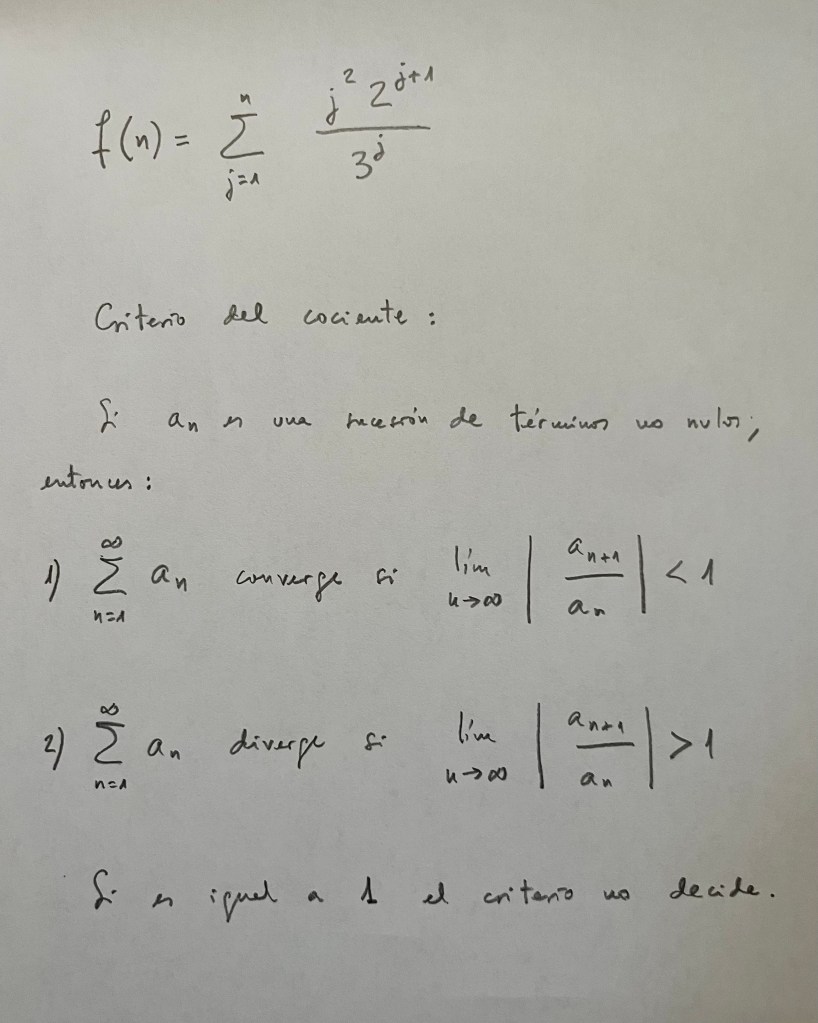 f(n) = ∑_{j=1}^{n} \frac{j^2 2^{j+1}}{3^j}
Criterio del cociente :
Si a_n es una sucesión de términos no nulos,
entonces :
1) ∑_{n=1}^{∞} a_n converge si lím_{n→∞} | \frac{a_{n+1}}{a_n} | < 1
2) ∑_{n=1}^{∞} a_n diverge si lím_{n→∞} | \frac{a_{n+1}}{a_n} | > 1
Si es igual a 1 el criterio no decide.